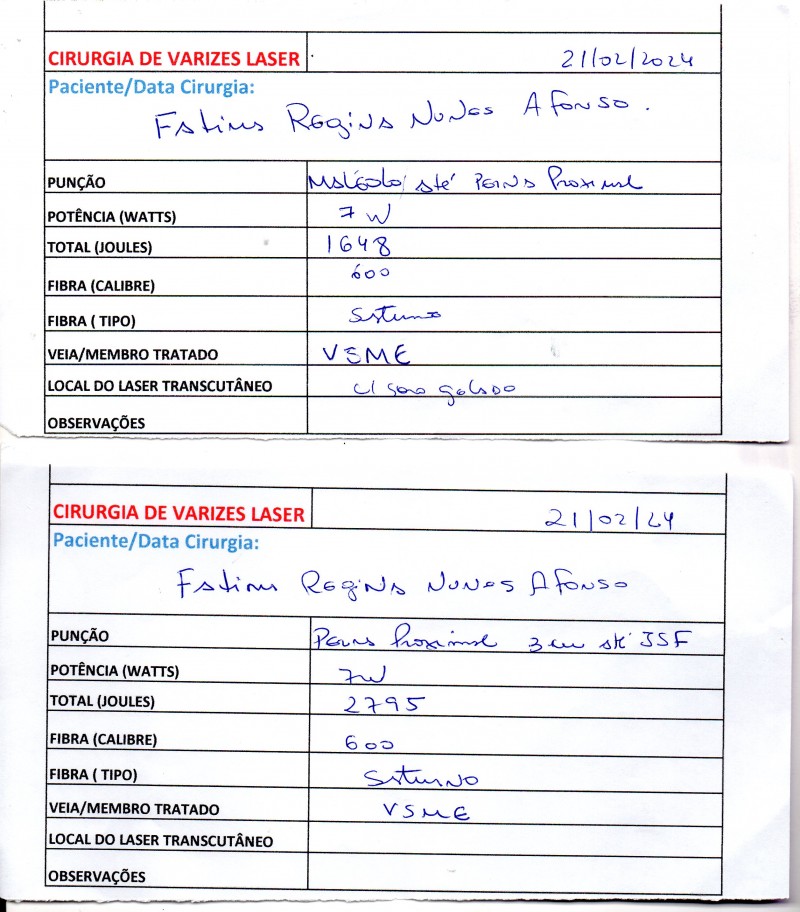 CIRURGIA DE VARIZES LASER 21/02/2024
Paciente/Data Cirurgia:
Fatima Regina Nunes Afonso.
PUNÇÃO Maléolo/ até Perna Proximal
POTÊNCIA (WATTS) 7 W
TOTAL (JOULES) 1648
FIBRA (CALIBRE) 600
FIBRA ( TIPO) Saturno
VEIA/MEMBRO TRATADO VSME
LOCAL DO LASER TRANSCUTÂNEO c/ soro gelado
OBSERVAÇÕES
CIRURGIA DE VARIZES LASER 21/02/24
Paciente/Data Cirurgia:
Fatima Regina Nunes Afonso
PUNÇÃO Perna Proximal 3 cm até JSF
POTÊNCIA (WATTS) 7W
TOTAL (JOULES) 2795
FIBRA (CALIBRE) 600
FIBRA ( TIPO) Saturno
VEIA/MEMBRO TRATADO VSME
LOCAL DO LASER TRANSCUTÂNEO
OBSERVAÇÕES